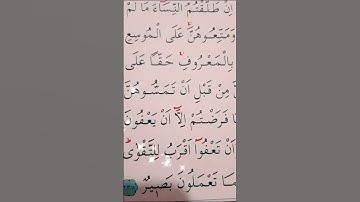 اِنْ طَلَّقْتُمُ النِّسَاءَ مَا لَمْ
وَمَتِّعُوْهُنَّ عَلَى الْمُوسِعِ
بِالْمَعْرُوفِ حَقًّا عَلَى
مِنْ قَبْلِ اَنْ تَمَسُّوهُنَّ
فَرَضْتُمْ اِلَّا اَنْ يَعْفُونَ
اَنْ تَعْفُوا اَقْرَبُ لِلتَّقْوٰى
مَا تَعْمَلُونَ بَصِيرٌ